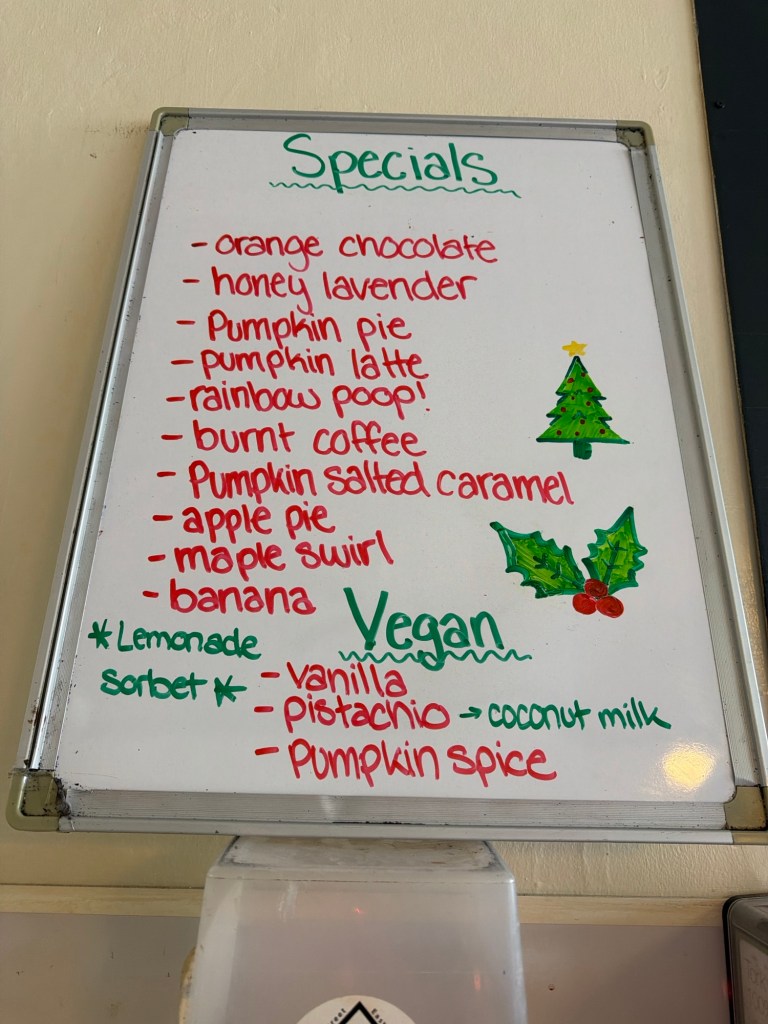 Specials
- orange chocolate
- honey lavender
- Pumpkin pie
- pumpkin latte
- rainbow poop!
- burnt coffee
- Pumpkin salted caramel
- apple pie
- maple swirl
- banana
* Lemonade
sorbet *
Vegan
- vanilla
- pistachio → coconut milk
- Pumpkin spice